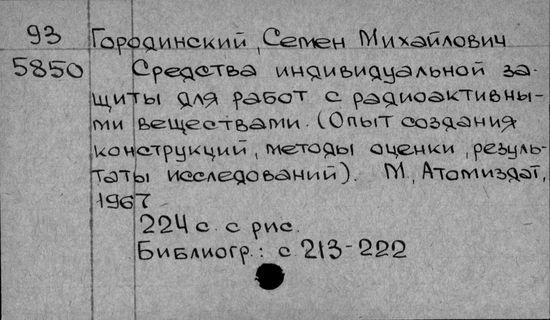 93 Городинский, Семен Михайлович
5850 Средства индивидуальной за-
щиты для работ с радиоактивны-
ми веществами. (Опыт создания
конструкций, методы оценки, резуль-
таты исследований). М., Атомиздат,
1967
224 с. с рис.
Библиогр.: с 213-222